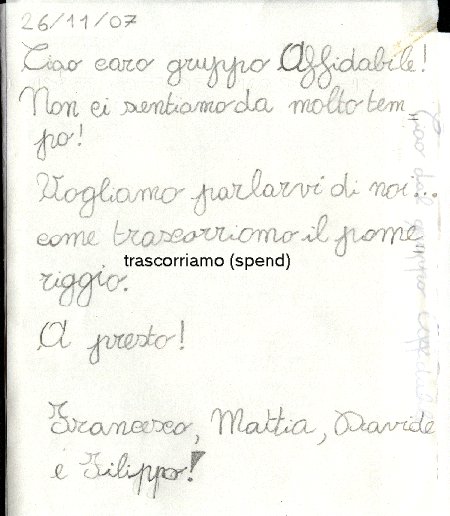 26/11/07
Ciao caro gruppo Affidabile!
Non ci sentiamo da molto tem=
po!
Vogliamo parlarvi di noi...
come trascorriomo il pome
trascorriamo (spend)
riggio.
A presto!
Francesco, Mattia, Davide
e Filippo!
Ciao dal gruppo